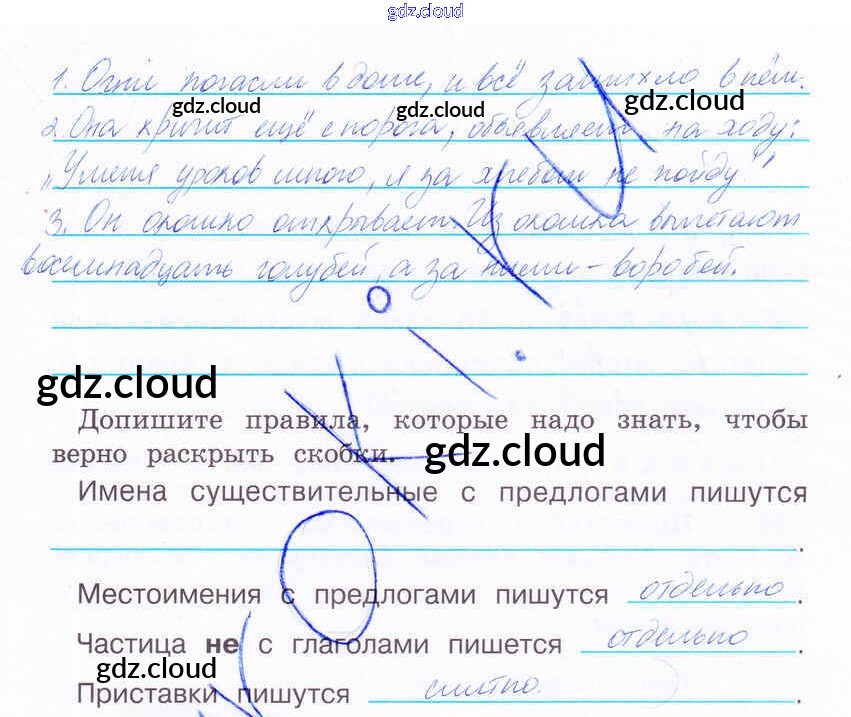 gdz.cloud
1. Огни погасли в доме, и всё затихло в нём.
gdz.cloud gdz.cloud gdz.cloud
2. Она кричит ещё с порога, объявляет на ходу:
„У меня уроков много, я за хлебом не пойду!"
3. Он окошко открывает. Из окошка вылетают
восемнадцать голубей, а за ними – воробей.
gdz.cloud
Допишите правила, которые надо знать, чтобы
верно раскрыть скобки.
gdz.cloud
Имена существительные с предлогами пишутся
.
Местоимения с предлогами пишутся отдельно.
Частица не с глаголами пишется отдельно.
gdz.cloud
Приставки пишутся слитно.